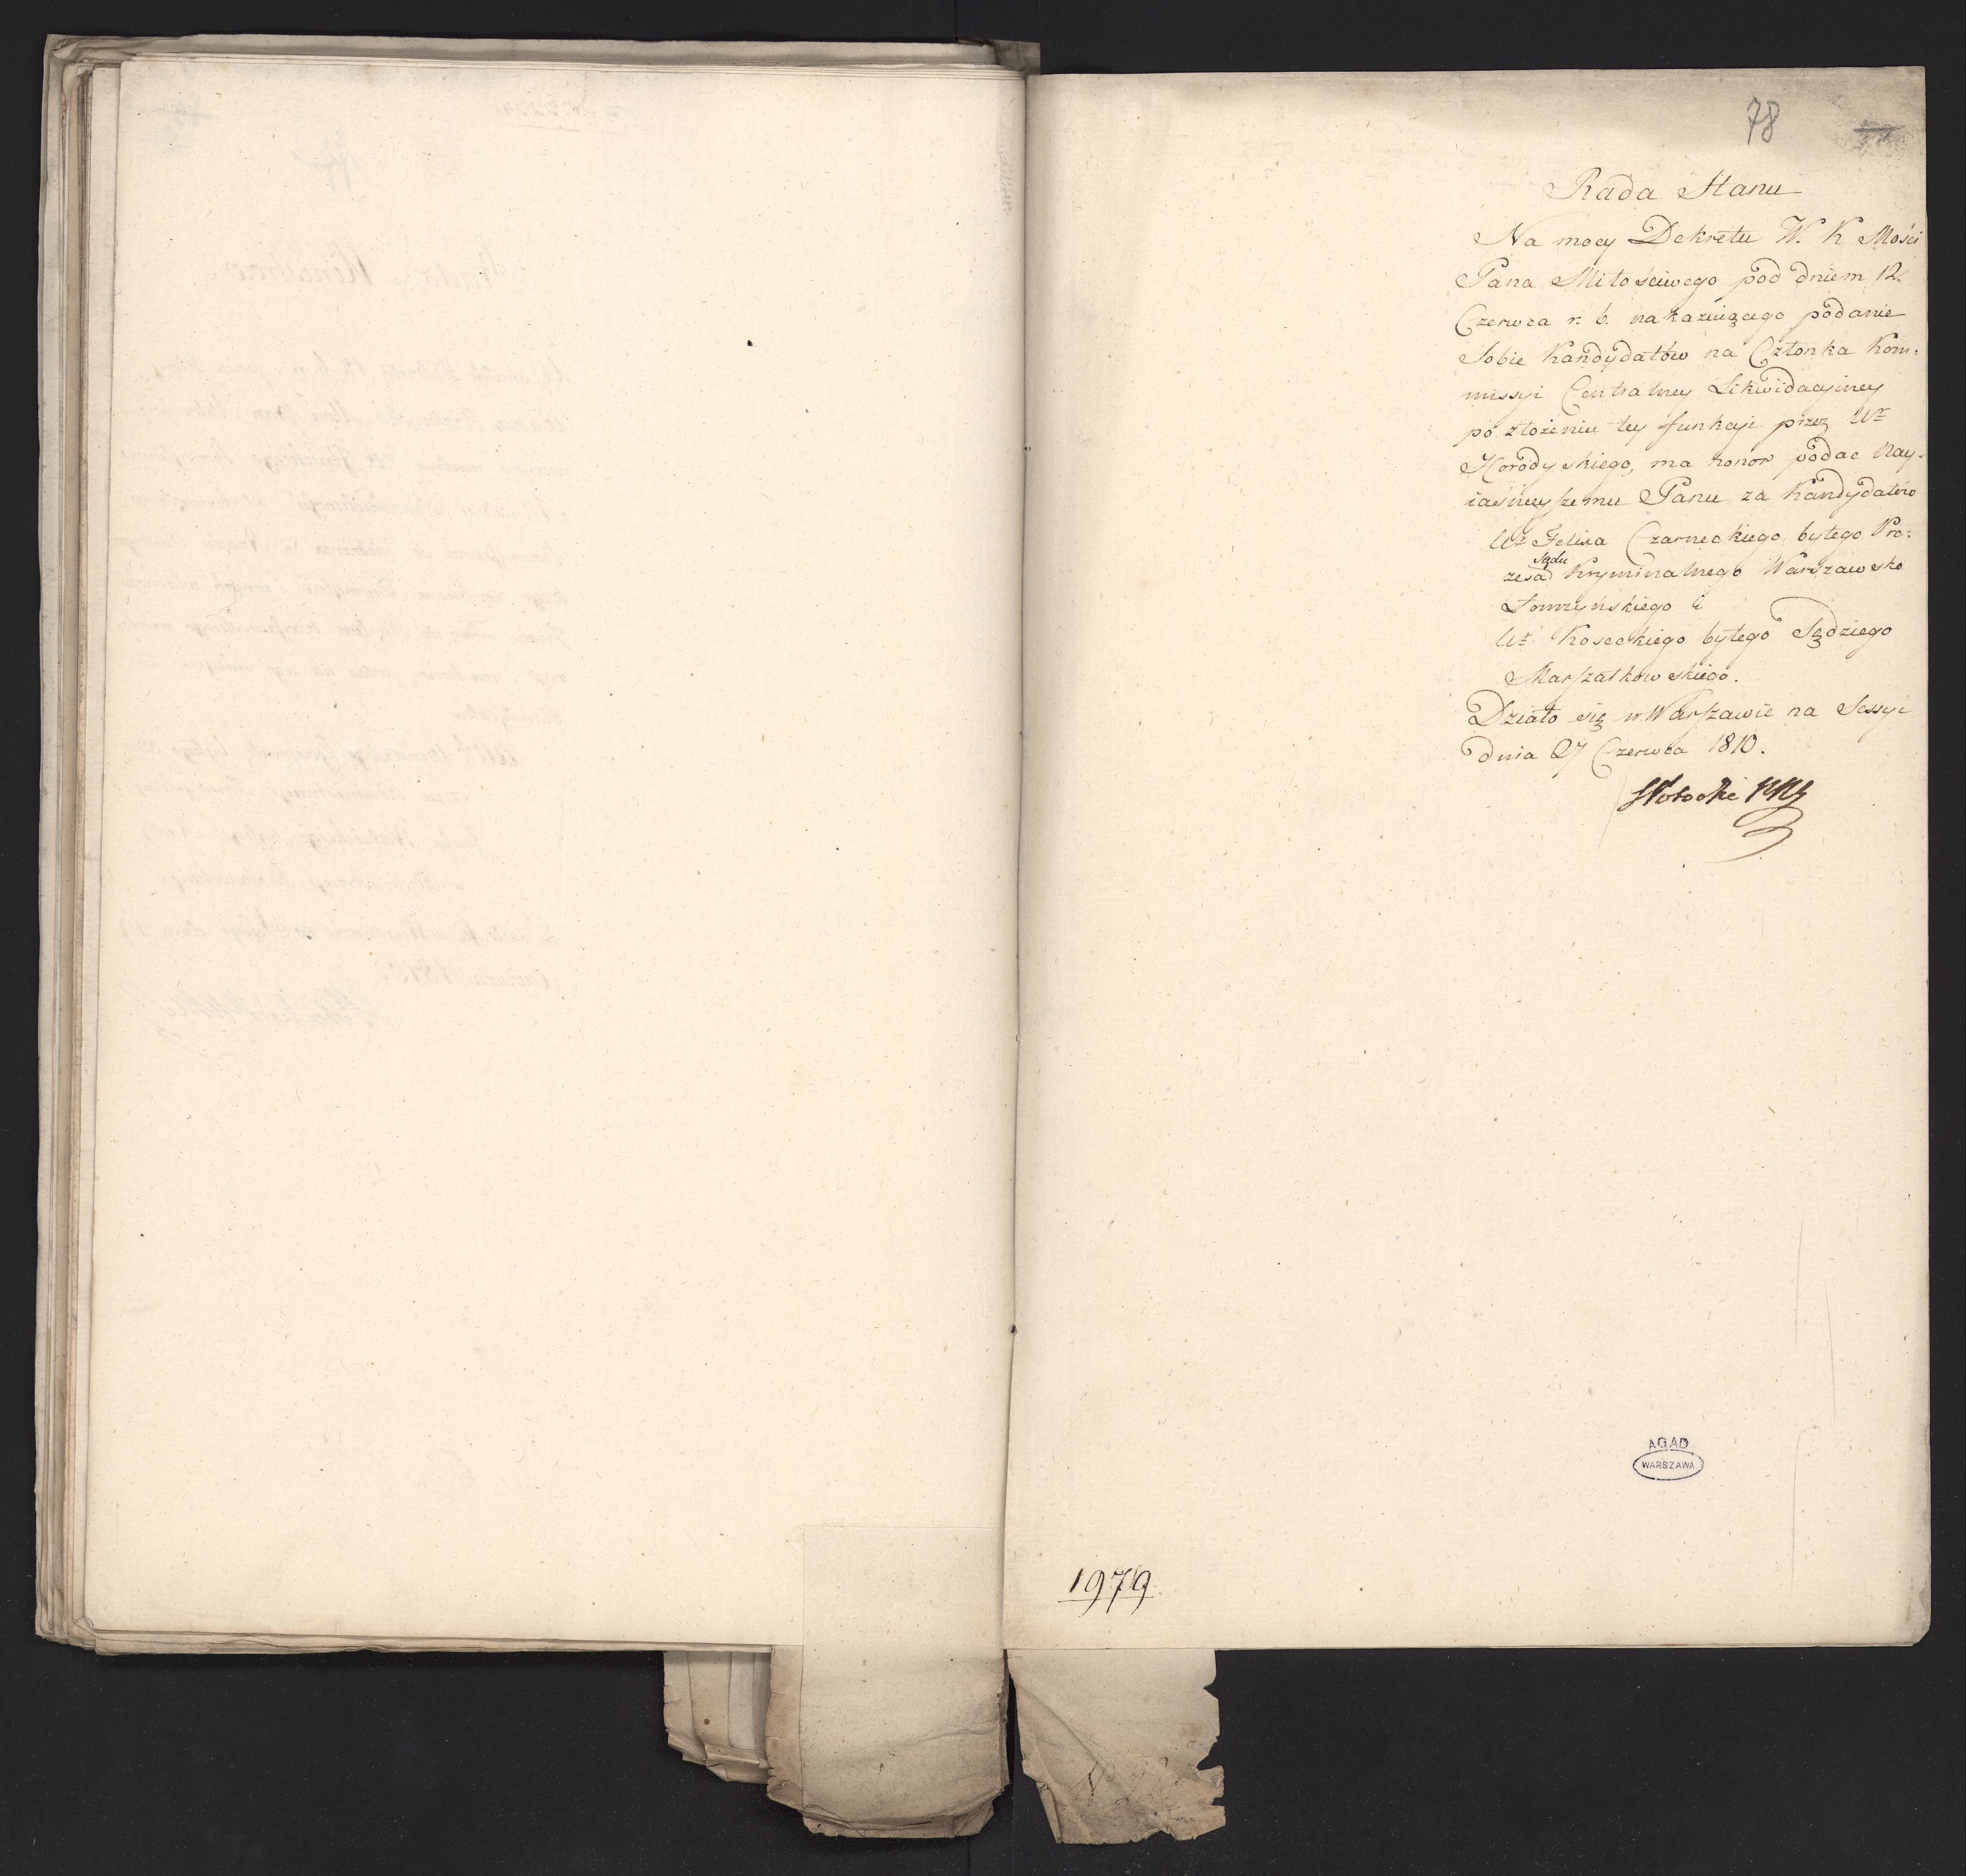 78
Rada Stanu
Na mocy Dekretu W. K Mości
Pana Miłościwego pod dniem 12.
Czerwca r: b. nakazuiącego podanie
Sobie Kandydatów na Członka Kom:
missyi Centralney Likwidacyiney
po złożeniu tey funkcyi przez Ur
Horodyskiego, ma honor podać Nay-
iaśnieyszemu Panu za Kandydatów
Ur Felixa Czarneckiego, byłego Pre:
zesa Sądu Kryminalnego Warszawsko
Łomżyńskiego i
Ur Koseckiego byłego Sędziego
Marszałkowskiego.
Działo się w Warszawie na Sessyi
dnia 27 Czerwca 1810.
SPotocki
AGAD
WARSZAWA
1979